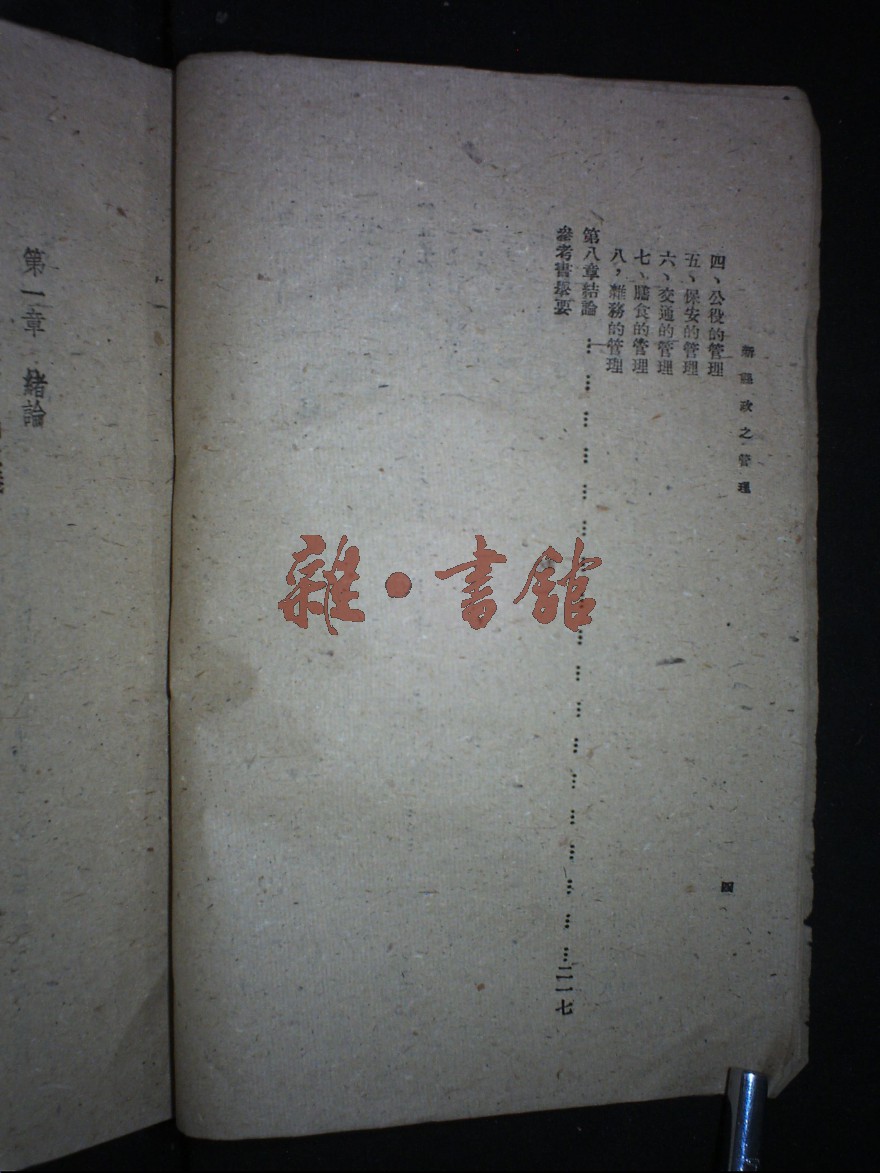 新縣政之管理
四
四、公役的管理
五、保安的管理
六、交通的管理
七、膳食的管理
八，雜務的管理
第八章結論………………………………………………二一七
參考書舉要
第一章 緒論
雜·書館